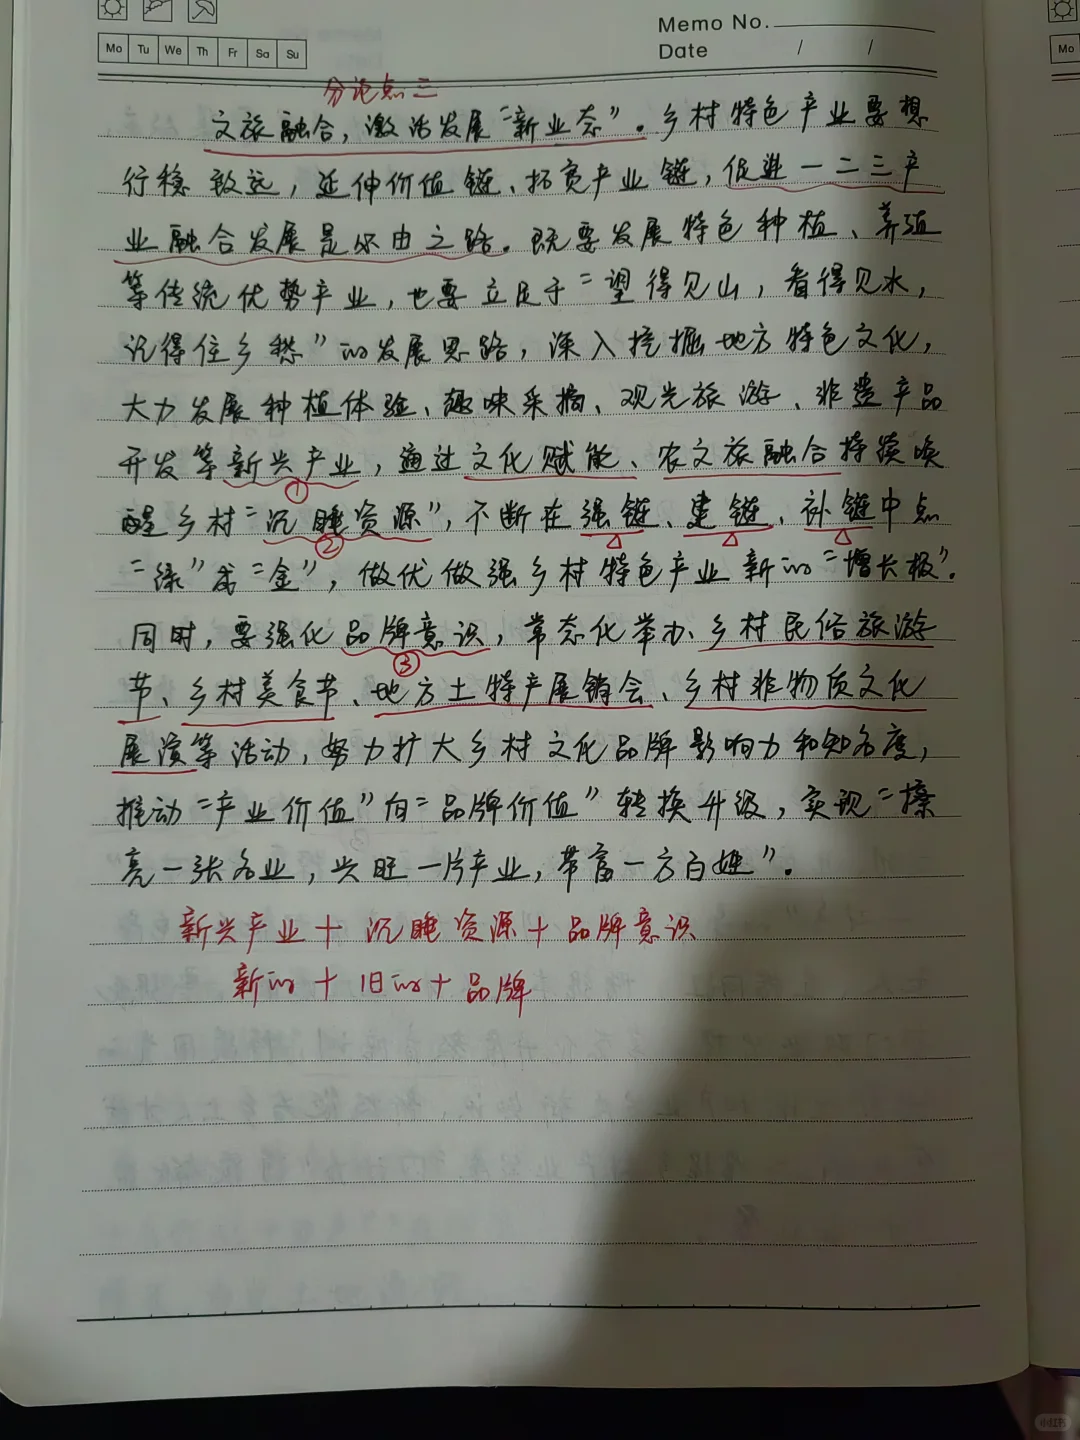 Memo No.
Mo Tu We Th Fr Sa Su
Date / /
Mo
分论点三
文旅融合，激活发展“新业态”。乡村特色产业要想
行稳致远，延伸价值链、拓宽产业链，促进一二三产
业融合发展是必由之路。既要发展特色种植、养殖
等传统优势产业，也要立足于“望得见山，看得见水，
记得住乡愁”的发展思路，深入挖掘地方特色文化，
大力发展种植体验、趣味采摘、观光旅游、非遗产品
开发等新兴产业，通过文化赋能、农文旅融合持续唤
①
醒乡村“沉睡资源”，不断在强链、建链、补链中点
②
“绿”成“金”，做优做强乡村特色产业新的“增长极”。
同时，要强化品牌意识，常态化举办、乡村民俗旅游
③
节、乡村美食节、地方土特产展销会、乡村非物质文化
展演等活动，努力扩大乡村文化品牌影响力和知名度，
推动“产业价值”向“品牌价值”转换升级，实现“擦
亮一张名业，兴旺一片产业，带富一方百姓”。
新兴产业＋沉睡资源＋品牌意识
新的＋旧的＋品牌
小红书